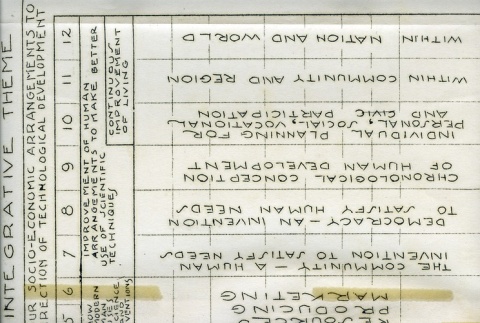 INTEGRATIVE THEME
OUR SOCIO-ECONOMIC ARRANGEMENTS TO
DIRECTION OF TECHNOLOGICAL DEVELOPMENT
12
11
10
9
8
7
6
5
CONTINUOUS
IMPROVEMENT
OF LIVING
IMPROVEMENT OF HUMAN
ARRANGEMENTS TO MAKE BETTER
USE OF SCIENTIFIC
TECHNIQUES
MODERN
WITHIN NATION AND WORLD
WITHIN COMMUNITY AND REGION
INDIVIDUAL PLANNING FOR
PERSONAL, SOCIAL, VOCATIONAL,
AND CIVIC PARTICIPATION
CHRONOLOGICAL CONCEPTION
OF HUMAN DEVELOPMENT
DEMOCRACY - AN INVENTION
TO SATISFY HUMAN NEEDS
THE COMMUNITY - A HUMAN
INVENTION TO SATISFY NEEDS
MARKETING
PRODUCING